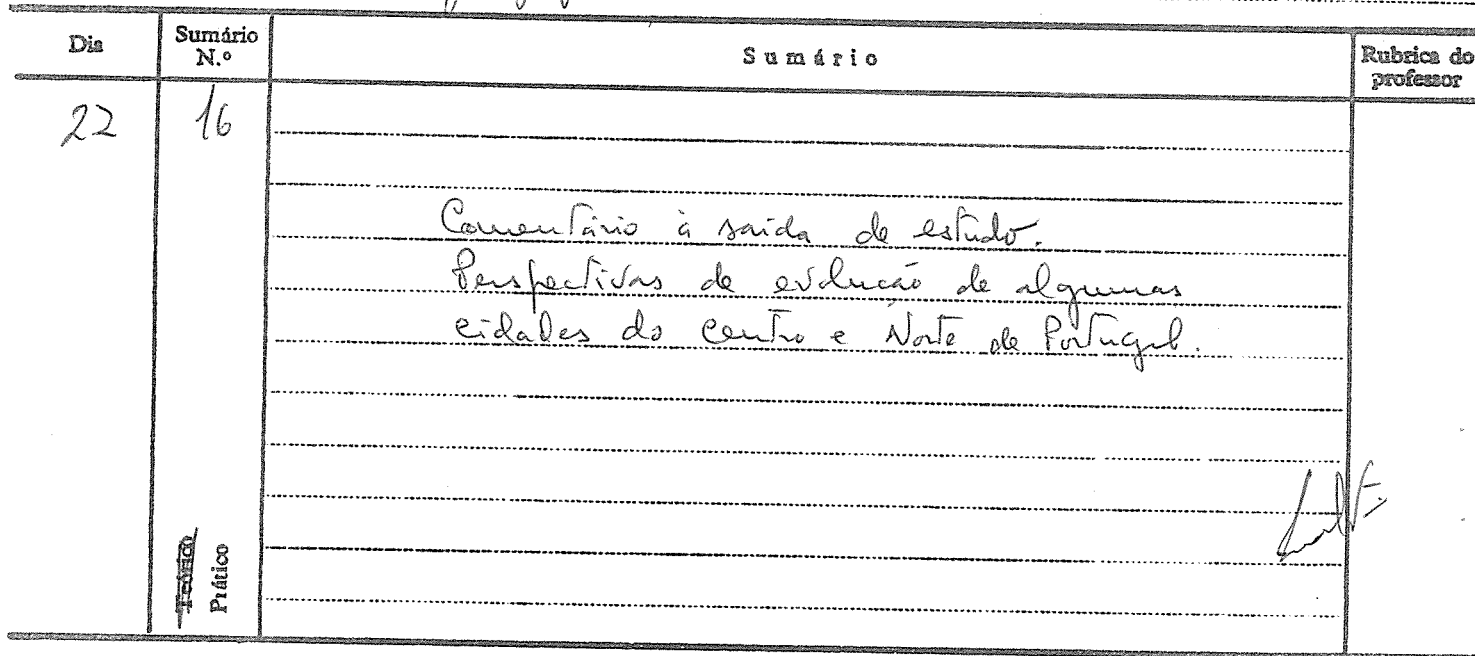 Dia
Sumário N.º
Sumário
Rubrica do professor
22
16
Comentário à saída de estudo.
Perspectivas de evolução de algumas
cidades do Centro e Norte de Portugal.
Teórico
Prático